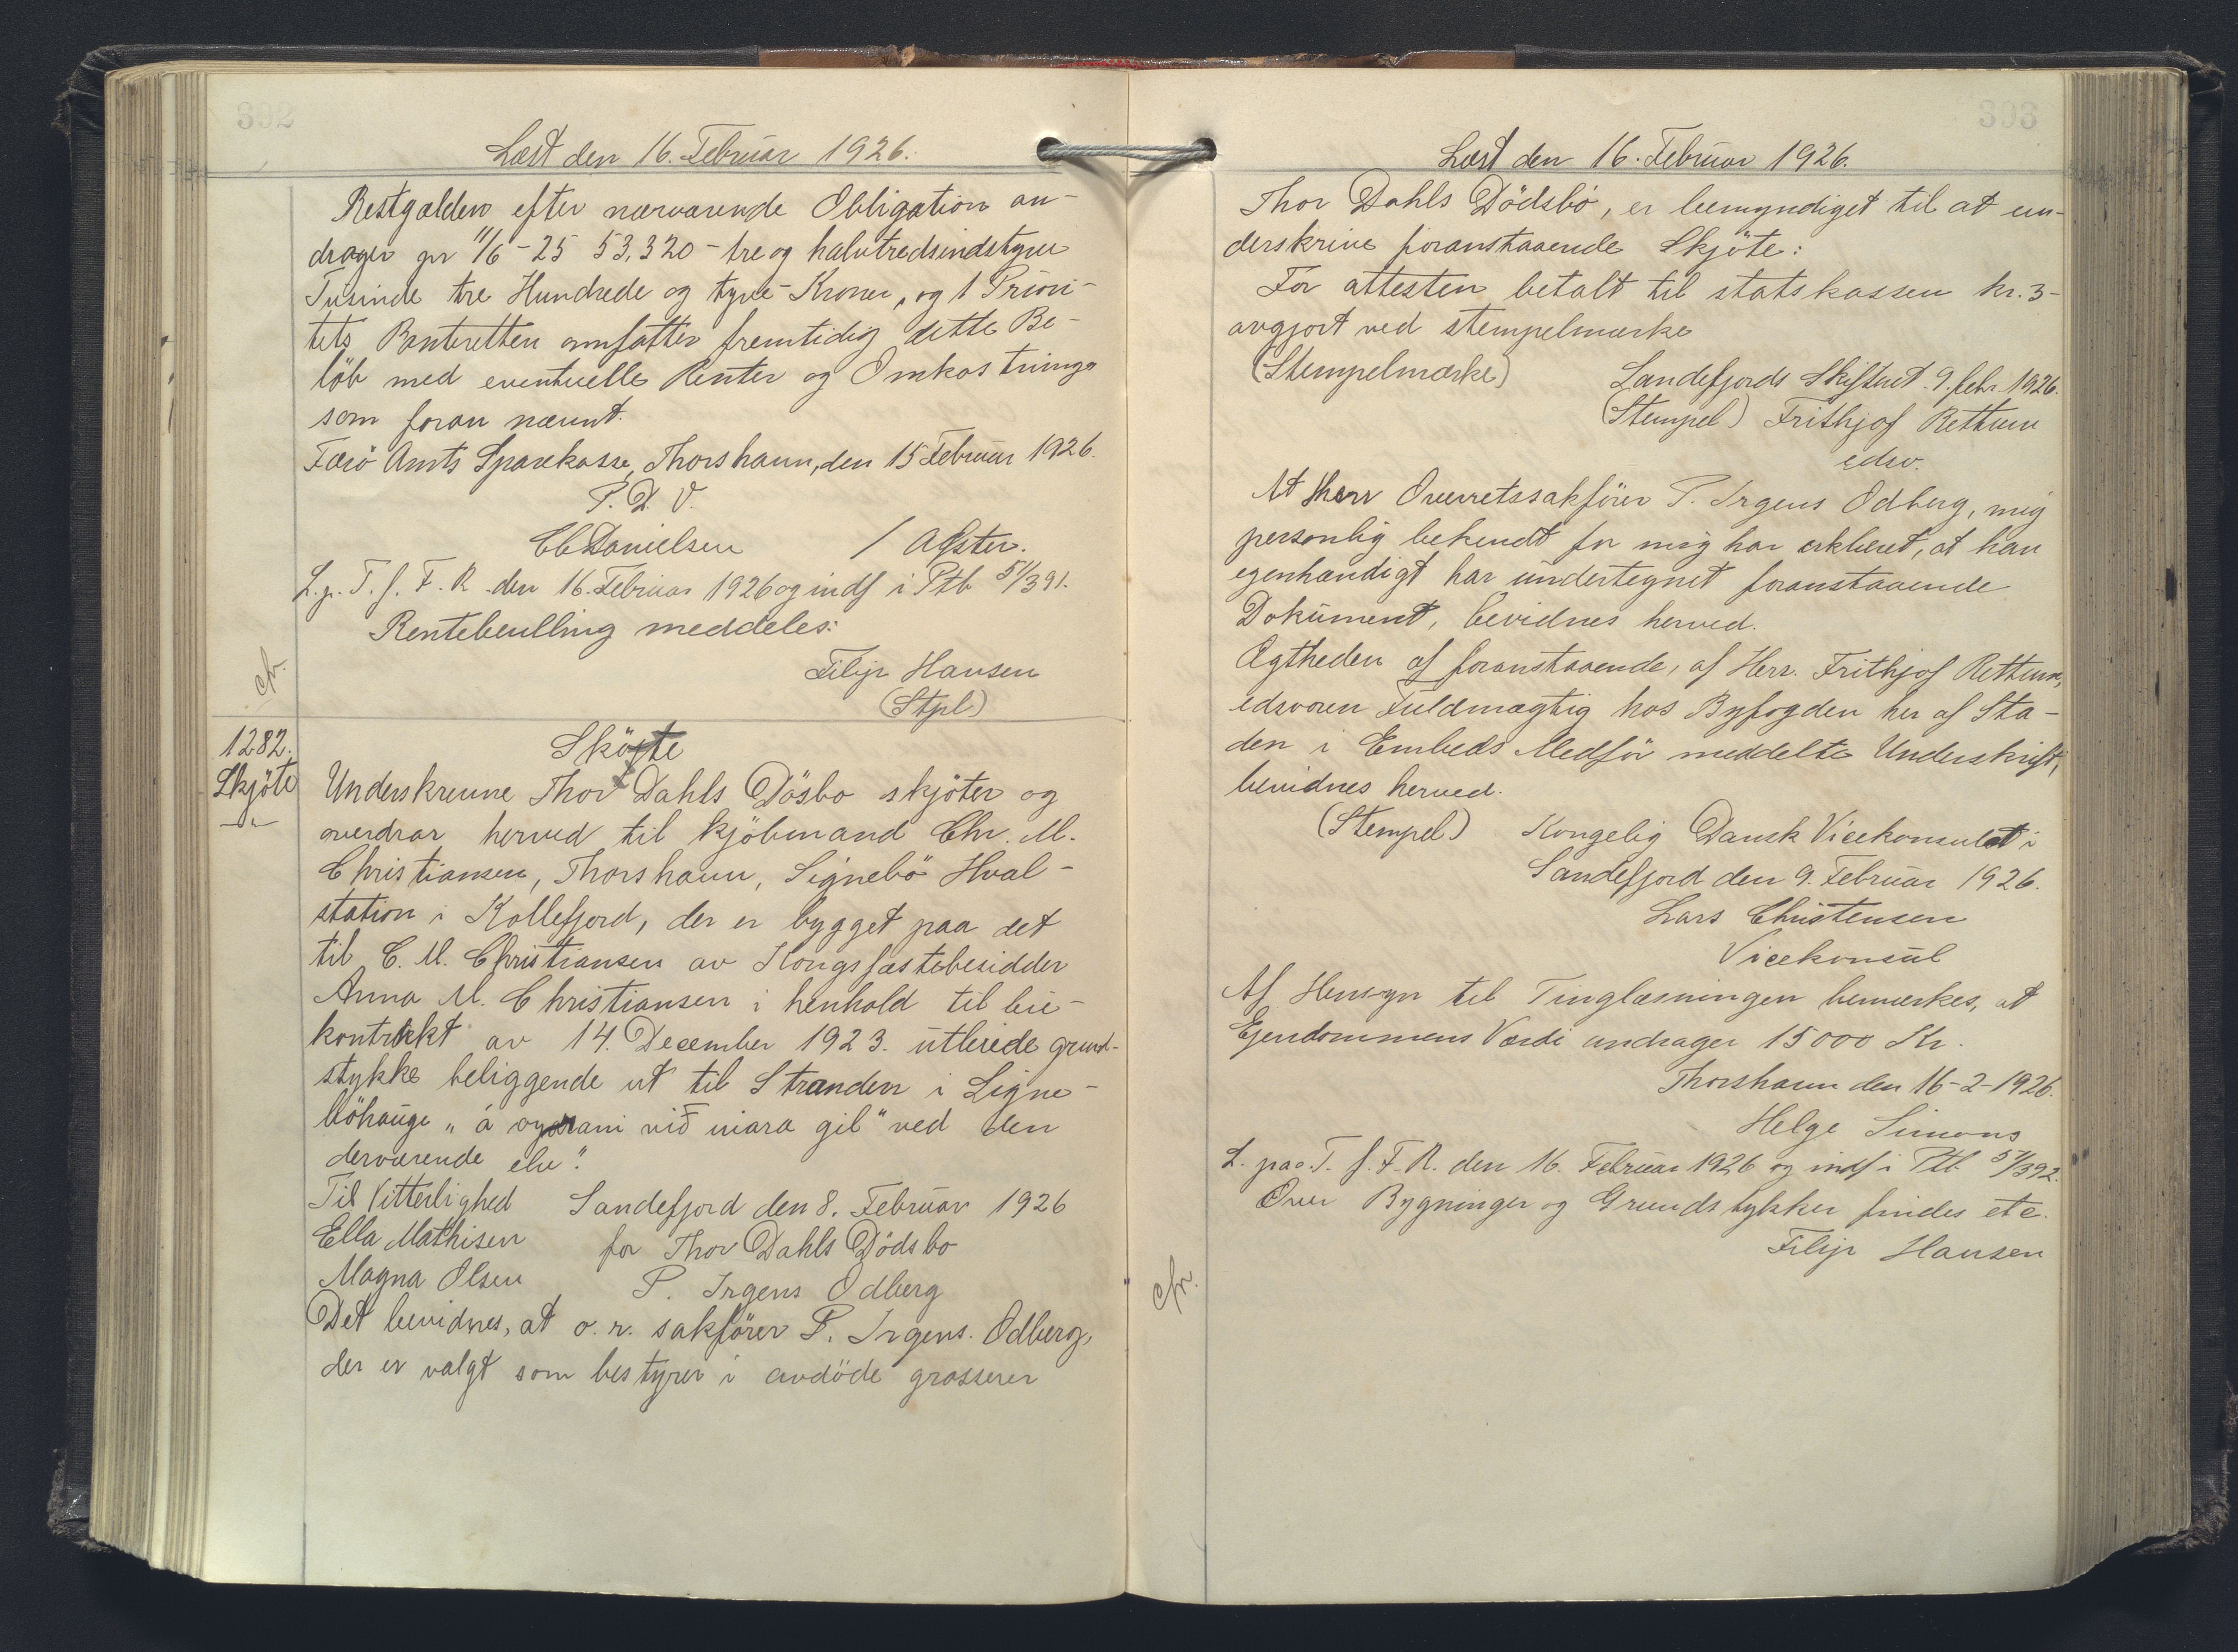 302
Læst den 16. Februar 1926.
Restgælden efter nærværende Obligation an-
drager pr 11/6-25 53,320 - tre og halvtredsindstyve
Tusinde tre Hundrede og tyve - Kroner, og 1 Priori-
tets Panteretten omfatter fremtidig dette Be-
löb med eventuelle Renter og Omkostninger
som foran nævnt.
Færö Amts Sparekasse, Thorshavn, den 15 Februar 1926.
P. D. V.
Danielsen /
L. p. T. f. F. R. den 16. Februar 1926 og indf i Ptb 51/391.
meddeles:
Filip Hansen
(Stpl)
cfr.
1282.
Skjöte
-"-
Sköjte
Underskrevne Thor Dahls Dösbo skjöter og
overdrar herved til kjöbmand Chr. M.
Christiansen, Thorshavn, Signebö Hval-
station i Kollefjord, der er bygget paa det
til C. M. Christiansen av Kongsfæstebesidder
Anna M. Christiansen i henhold til leie-
kontrakt av 14. December 1923. utleiede grund-
stykke beliggende ut til Stranden i Signe-
böhauge „á ani við gil" ved den
derværende elv".
Til Vitterlighed Sandefjord den 8. Februar 1926
Ella Mathisen for Thor Dahls Dödsbo
Magna Olsen P. Irgens Odberg
Det bevidnes, at o. r. sakförer P. Irgens. Odberg,
der er valgt som bestyrer i avdöde grosserer
303
Læst den 16. Februar 1926.
Thor Dahls Dödsbo, er bemyndiget til at un-
derskrive foranstaaende Skjöte:
For attesten betalt til statskassen kr. 3-
avgjort ved stempelmærke
(Stempelmærke) Sandefjords Skifteret. 9. febr 1926.
(Stempel) Frithjof Rettum
edsv.
At Herr Overretssakförer P. Irgens Odberg, mig
personlig bekendt for mig har erklæret, at han
egenhændigt har undertegnet foranstaaende
Dokument, bevidnes herved.
Ægtheden af foranstaaende, af Herr. Frithjof Rettum,
edsvoren Fuldmægtig hos Byfogden her af Sta-
den i Embeds Medför meddelte Underskrift,
bevidnes herved.
(Stempel) Kongelig Dansk Vicekonsulat i
Sandefjord den 9. Februar 1926.
Lars Christensen
Vicekonsul
Af Hensyn til Tinglæsningen bemærkes, at
Ejendommens Værdi andrager 15000 Kr.
Thorshavn den 16-2-1926.
Helge Simons
L. paa. T. f. F. R. den 16. Februar 1926 og indf i Ptb. 51/392.
Over Bygninger og Grundstykker findes etc.
Filip Hansen
cfr.